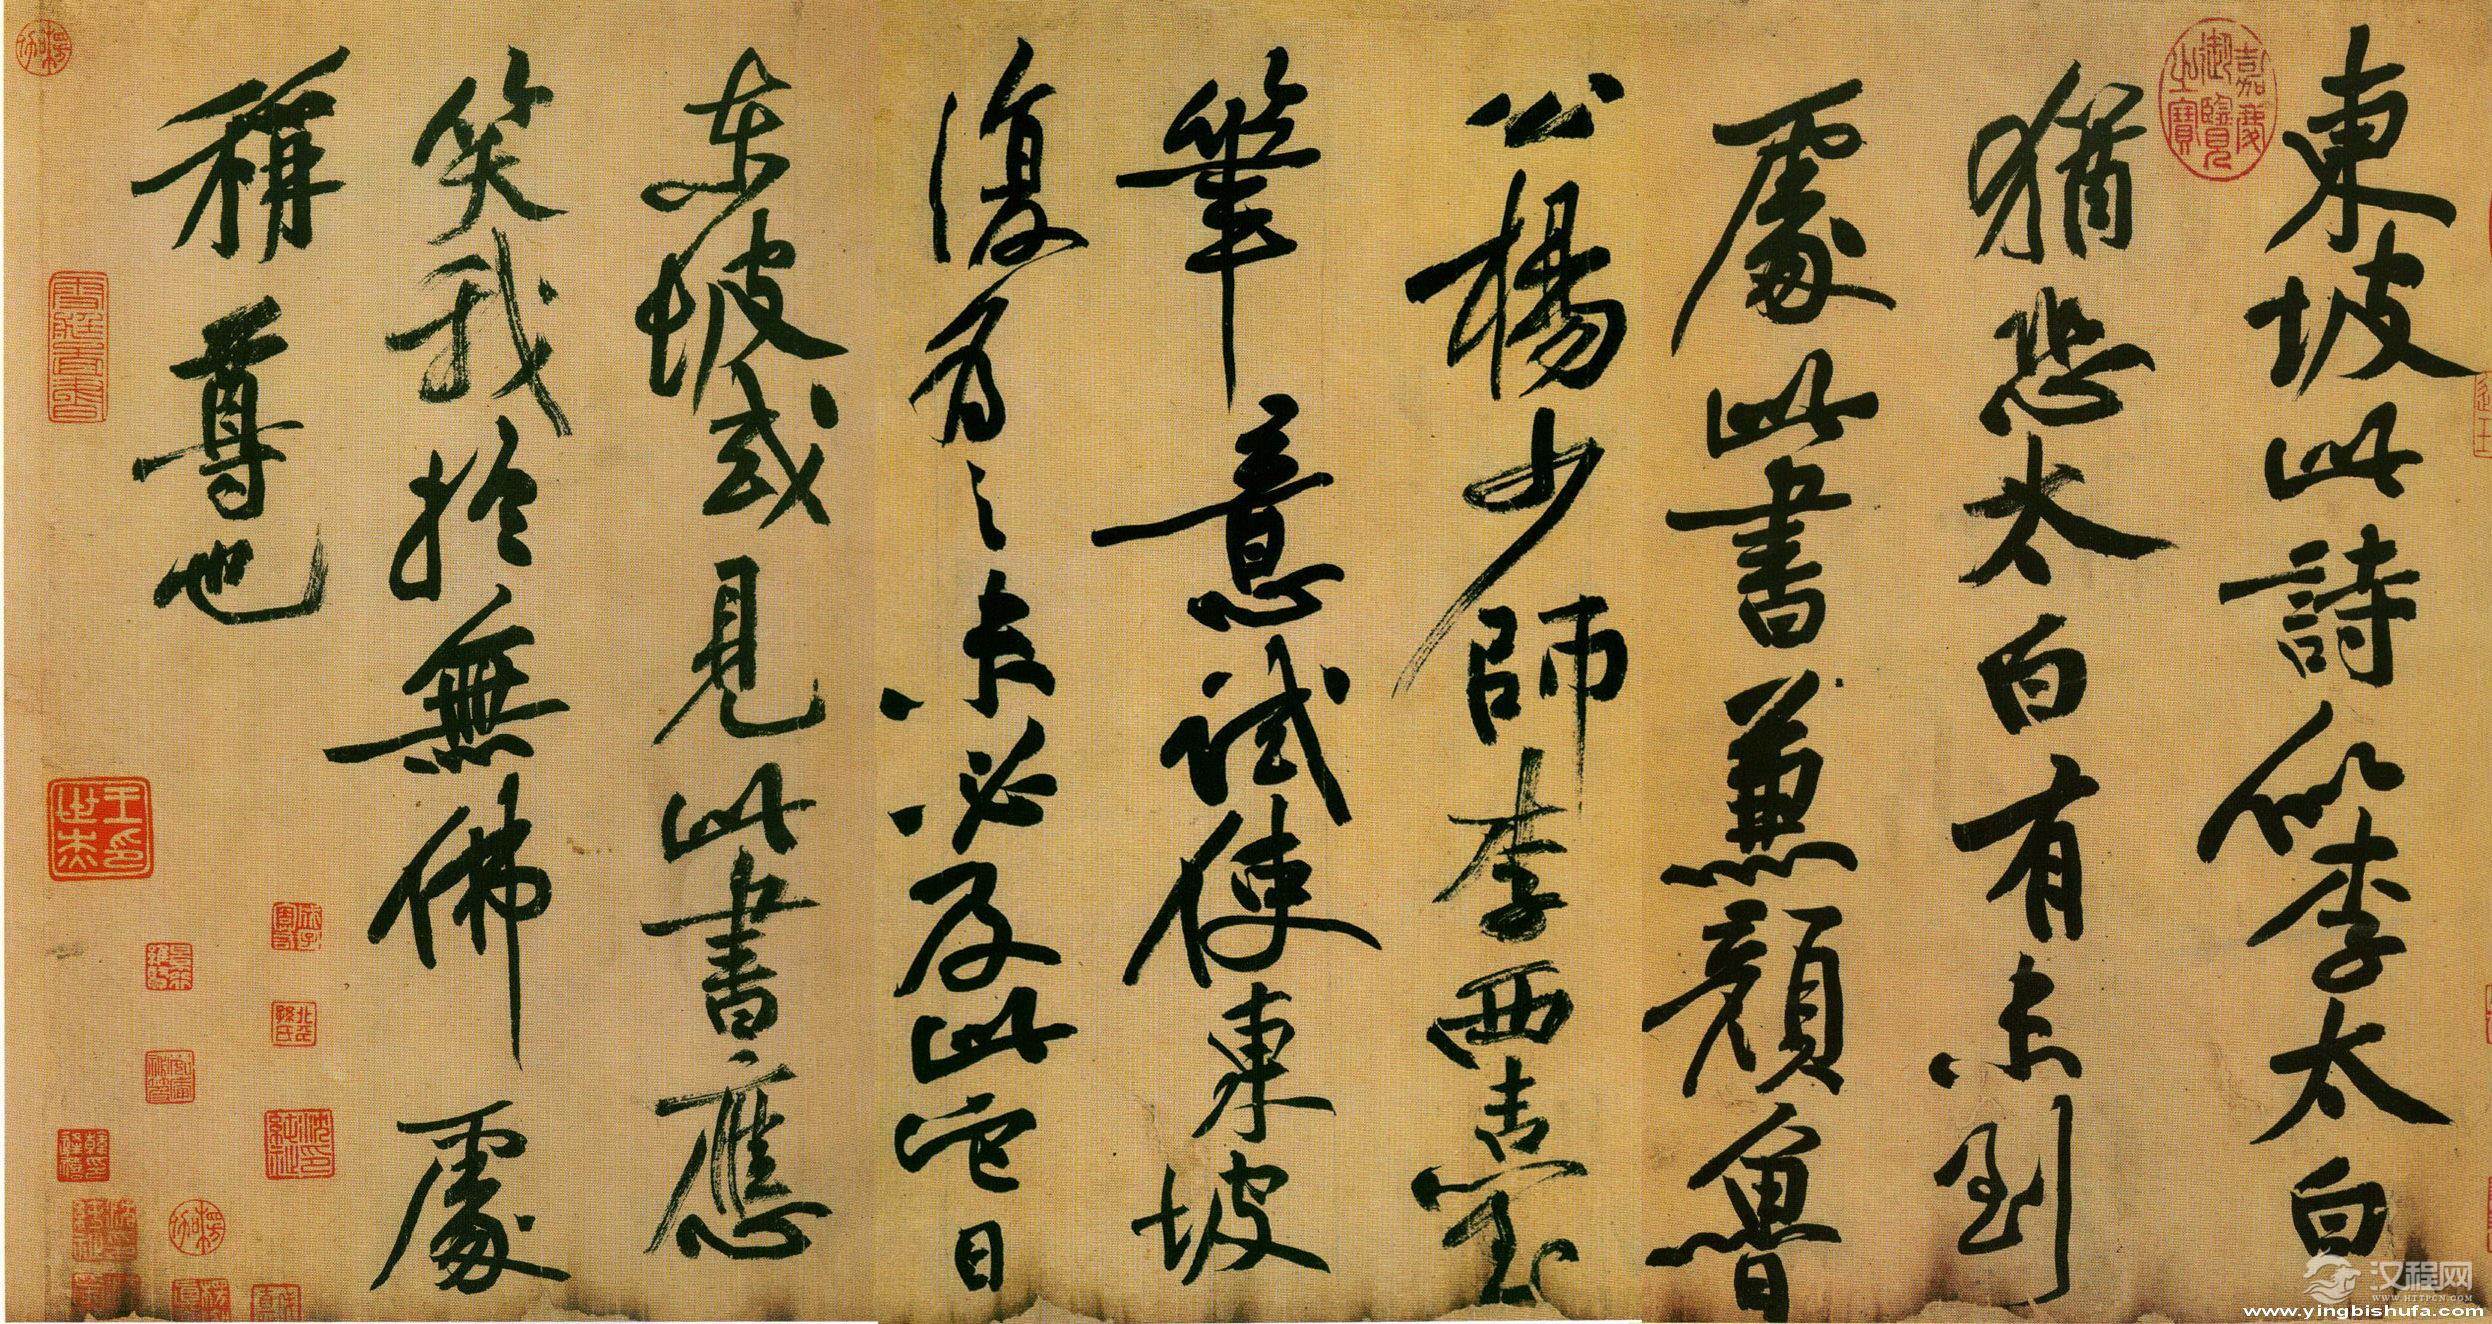 東坡此詩似李太白
猶恐太白有未到
處此書兼顏魯
公楊少師李西臺
筆意試使東坡
復為之未必及此它日
東坡或見此書應
笑我於無佛處
稱尊也
嘉慶御覽之寶
汉程网
WWW.HTTPCN.COM
www.yingbishufa.com